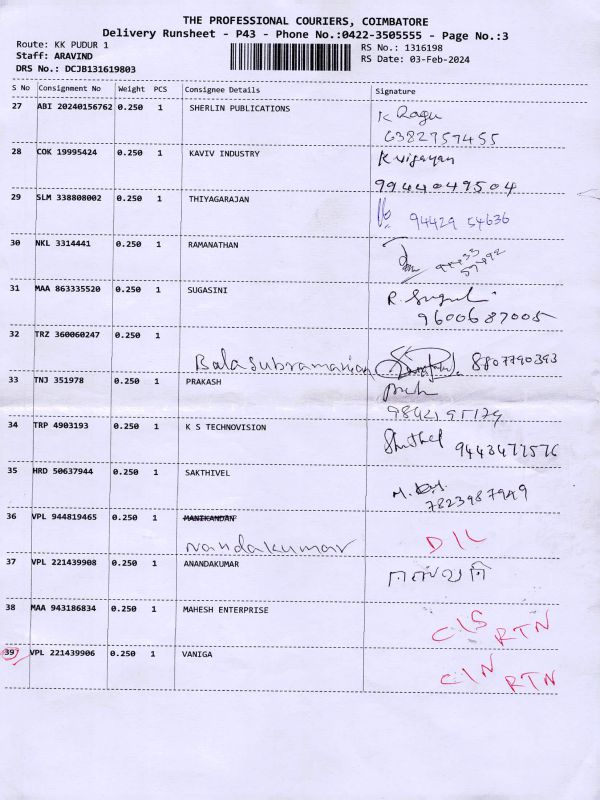 THE PROFESSIONAL COURIERS, COIMBATORE
Delivery Runsheet - P43 - Phone No.:0422-3505555 - Page No.:3
Route: KK PUDUR 1 RS No.: 1316198
Staff: ARAVIND RS Date: 03-Feb-2024
DRS No.: DCJB131619803
S No Consignment No Weight PCS Consignee Details Signature
27 ABI 20240156762 0.250 1 SHERLIN PUBLICATIONS K Ragu
6382757455
28 COK 19995424 0.250 1 KAVIV INDUSTRY K vijayan
9944049504
29 SLM 338808002 0.250 1 THIYAGARAJAN 94429 54636
30 NKL 3314441 0.250 1 RAMANATHAN
31 MAA 863335520 0.250 1 SUGASINI R.
9600687005
32 TRZ 360060247 0.250 1
Balasubramanian 8807790393
33 TNJ 351978 0.250 1 PRAKASH
34 TRP 4903193 0.250 1 K S TECHNOVISION 9443477576
35 HRD 50637944 0.250 1 SAKTHIVEL M.
36 VPL 944819465 0.250 1 MANIKANDAN
nandakumar DIL
37 VPL 221439908 0.250 1 ANANDAKUMAR
38 MAA 943186834 0.250 1 MAHESH ENTERPRISE CIS RTN
39 VPL 221439906 0.250 1 VANIGA CIN RTN